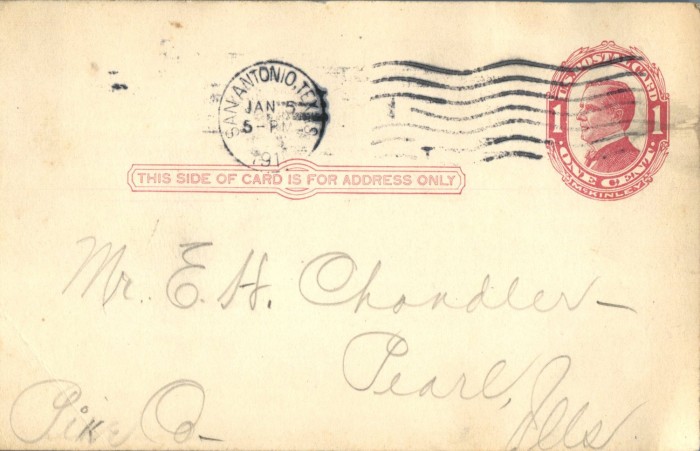 SAN ANTONIO, TEXAS
JAN 5
5-P
191
U.S. POSTAL CARD
1 1
ONE CENT
McKINLEY
THIS SIDE OF CARD IS FOR ADDRESS ONLY
Mr. E. H. Chandler
Pearl, Ills
Pike Co